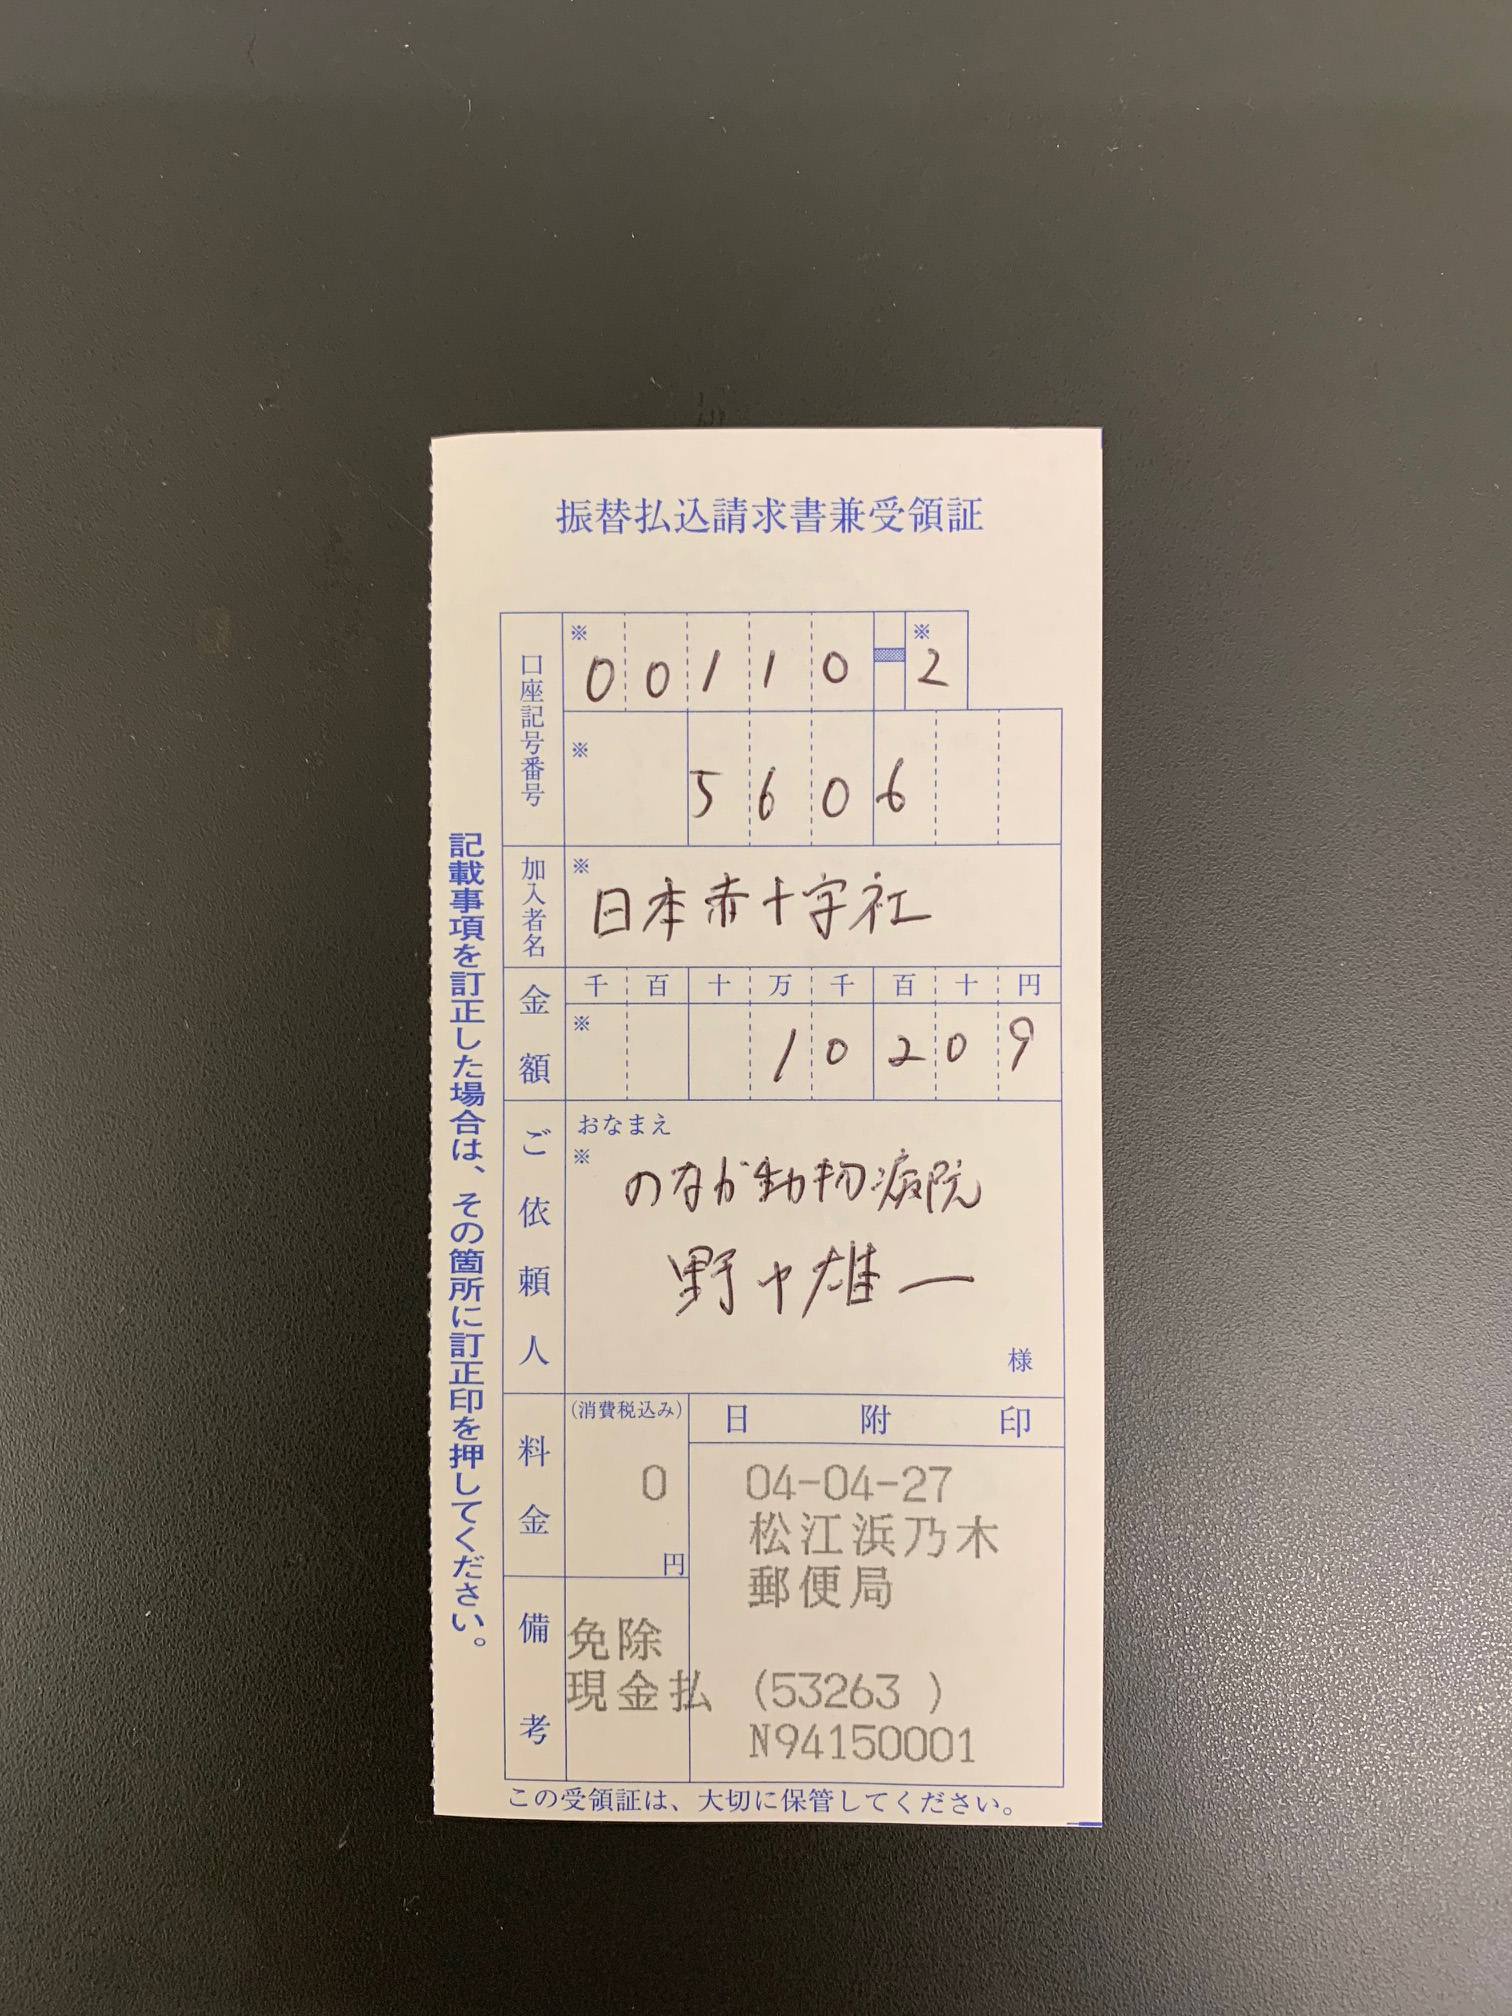 振替払込請求書兼受領証
口座記号番号
※ 00110-※2
※ 5606
加入者名
※ 日本赤十字社
金額
千 百 十 万 千 百 十 円
※ 10209
ご依頼人
おなまえ
※ のなか動物病院
野中雄一
様
料金
(消費税込み)
0
円
日附印
04-04-27
松江浜乃木
郵便局
備考
免除
現金払 (53263 )
N94150001
この受領証は、大切に保管してください。
記載事項を訂正した場合は、その箇所に訂正印を押してください。